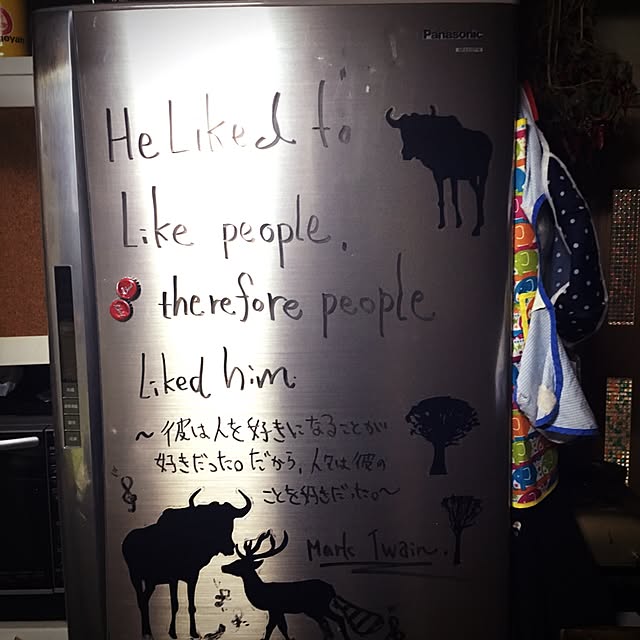 Panasonic
He Liked to
Like people,
therefore people
Liked him.
~ 彼は人を好きになることが
好きだった。だから、人々は彼の
ことを好きだった。~
Mark Twain.